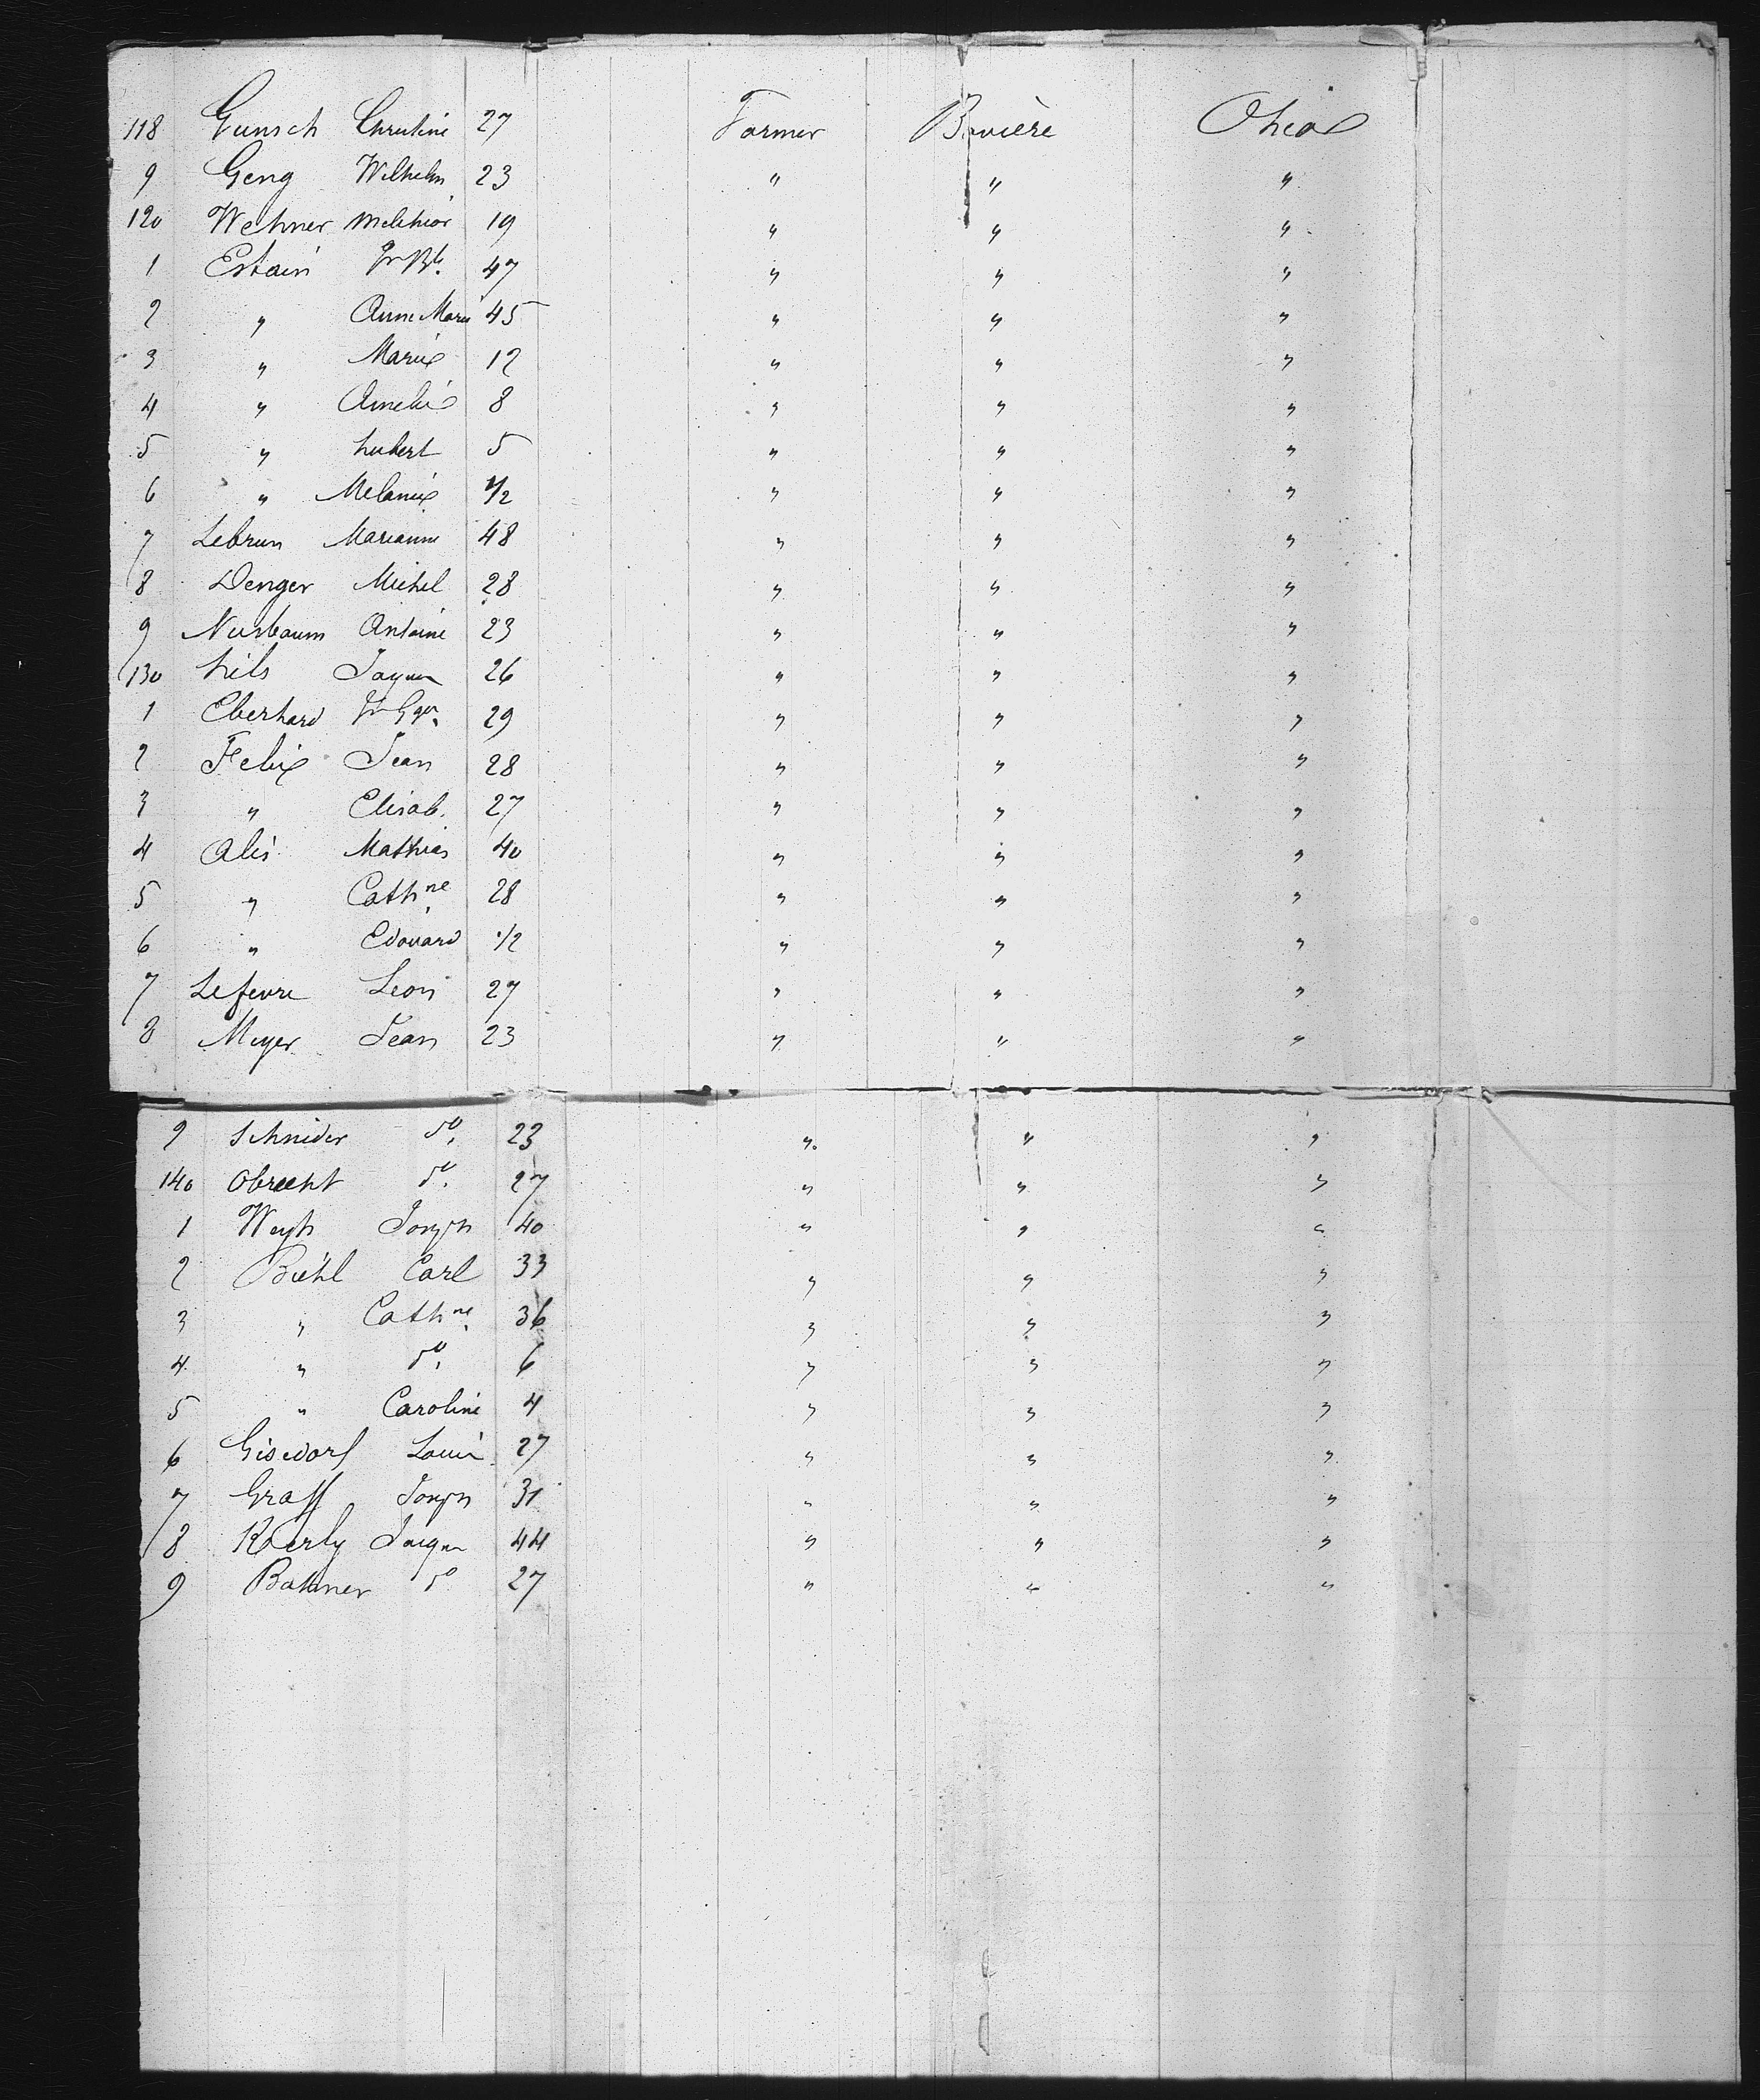 118 Gunsch Christine 27 Farmer Bavière Ohio
9 Geng Wilhelm 23 " " "
120 Wehner Melchior 19 " " "
1 Estain 47 " " "
2 " Anne Marie 45 " " "
3 " Marie 12 " " "
4 " Amelie 8 " " "
5 " hubert 5 " " "
6 " Melanie 1/2 " " "
7 Lebrun Marianne 48 " " "
8 Denger Michel 28 " " "
9 Nusbaum Antoine 23 " " "
130 hils Jaques 26 " " "
1 Eberhard 29 " " "
2 Felix Jean 28 " " "
3 " Elisab. 27 " " "
4 Alis Mathias 40 " " "
5 " Cathne 28 " " "
6 " Edouard 1/2 " " "
7 Lefevre Leon 27 " " "
8 Meyer Jean 23 " " "
9 Schnider do. 23 " " "
140 Obrecht do. 27 " " "
1 Weyh Joseph 40 " " "
2 Biehl Carl 33 " " "
3 " Cathne. 36 " " "
4 " do. 6 " " "
5 " Caroline 4 " " "
6 Gisdorf Louis 27 " " "
7 Graff Joseph 31 " " "
8 Koerly Jaques 44 " " "
9 Bahner do 27 " " "